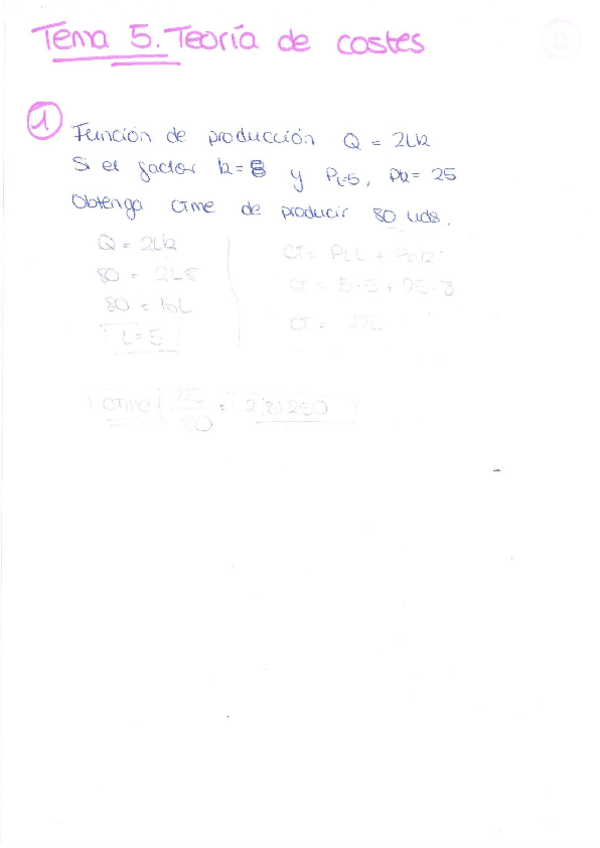 Tema 5. Teoría de costes
1
Función de producción Q = 2LK
Si el factor K = 8 y PL=5, PK = 25
Obtenga CTMe de producir 80 uds.
Q = 2LK
80 = 2L8
80 = 16L
L = 5
CT = PLL + PKK
CT = 5·5 + 25·8
CT = 225
CTMe 225/80 = 2,81250